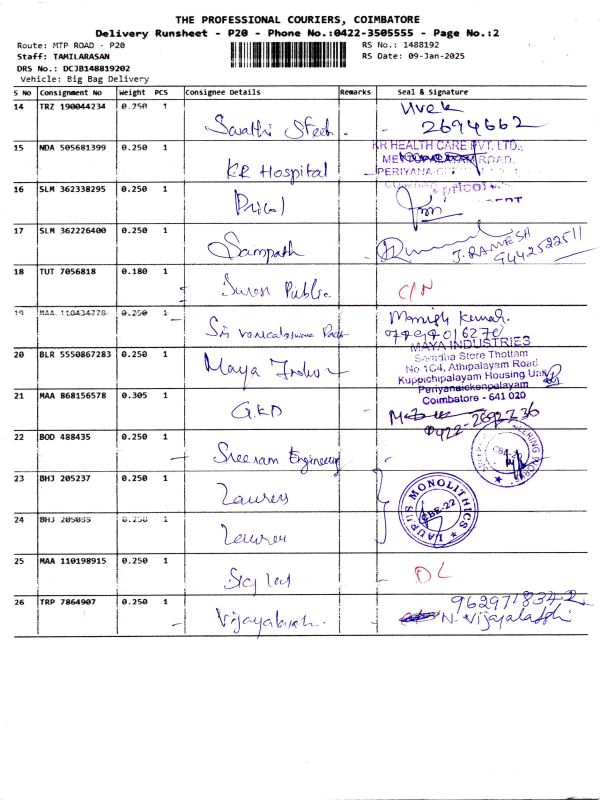 THE PROFESSIONAL COURIERS, COIMBATORE
Delivery Runsheet - P20 - Phone No.:0422-3505555 - Page No.:2
Route: MTP ROAD - P20 RS No.: 1488192
Staff: TAMILARASAN RS Date: 09-Jan-2025
DRS No.: DCJB148819202
Vehicle: Big Bag Delivery
S No Consignment No Weight PCS Consignee Details Remarks Seal & Signature
14 TRZ 190044234 0.250 1 Vivek
2694662
15 NDA 505681399 0.250 1 KR HEALTH CARE PVT. LTD.,
KR Hospital ROAD,
16 SLM 362338295 0.250 1
Pricol
17 SLM 362226400 0.250 1
Sampath J. RAMESH
9442522511
18 TUT 7056818 0.180 1
Public C/N
19 MAA 110434778 0.250 1 Manish Kumar
MAYA INDUSTRIES
20 BLR 5550867283 0.250 1 Savadha Store Thottam
Maya No.1C4, Athipalayam Road
Kuppichipalayam Housing Unit
Periyanaickenpalayam
21 MAA 868156578 0.305 1 Coimbatore - 641 020
GKD
0422-2692736
22 BOD 488435 0.250 1
Sreeram Engineering
23 BHJ 205237 0.250 1 LAURUS MONOLITHICS
CBE-22
24 BHJ 0.250 1
25 MAA 110198915 0.250 1
DL
26 TRP 7864907 0.250 1 9629718342
N. Vijayalakshi